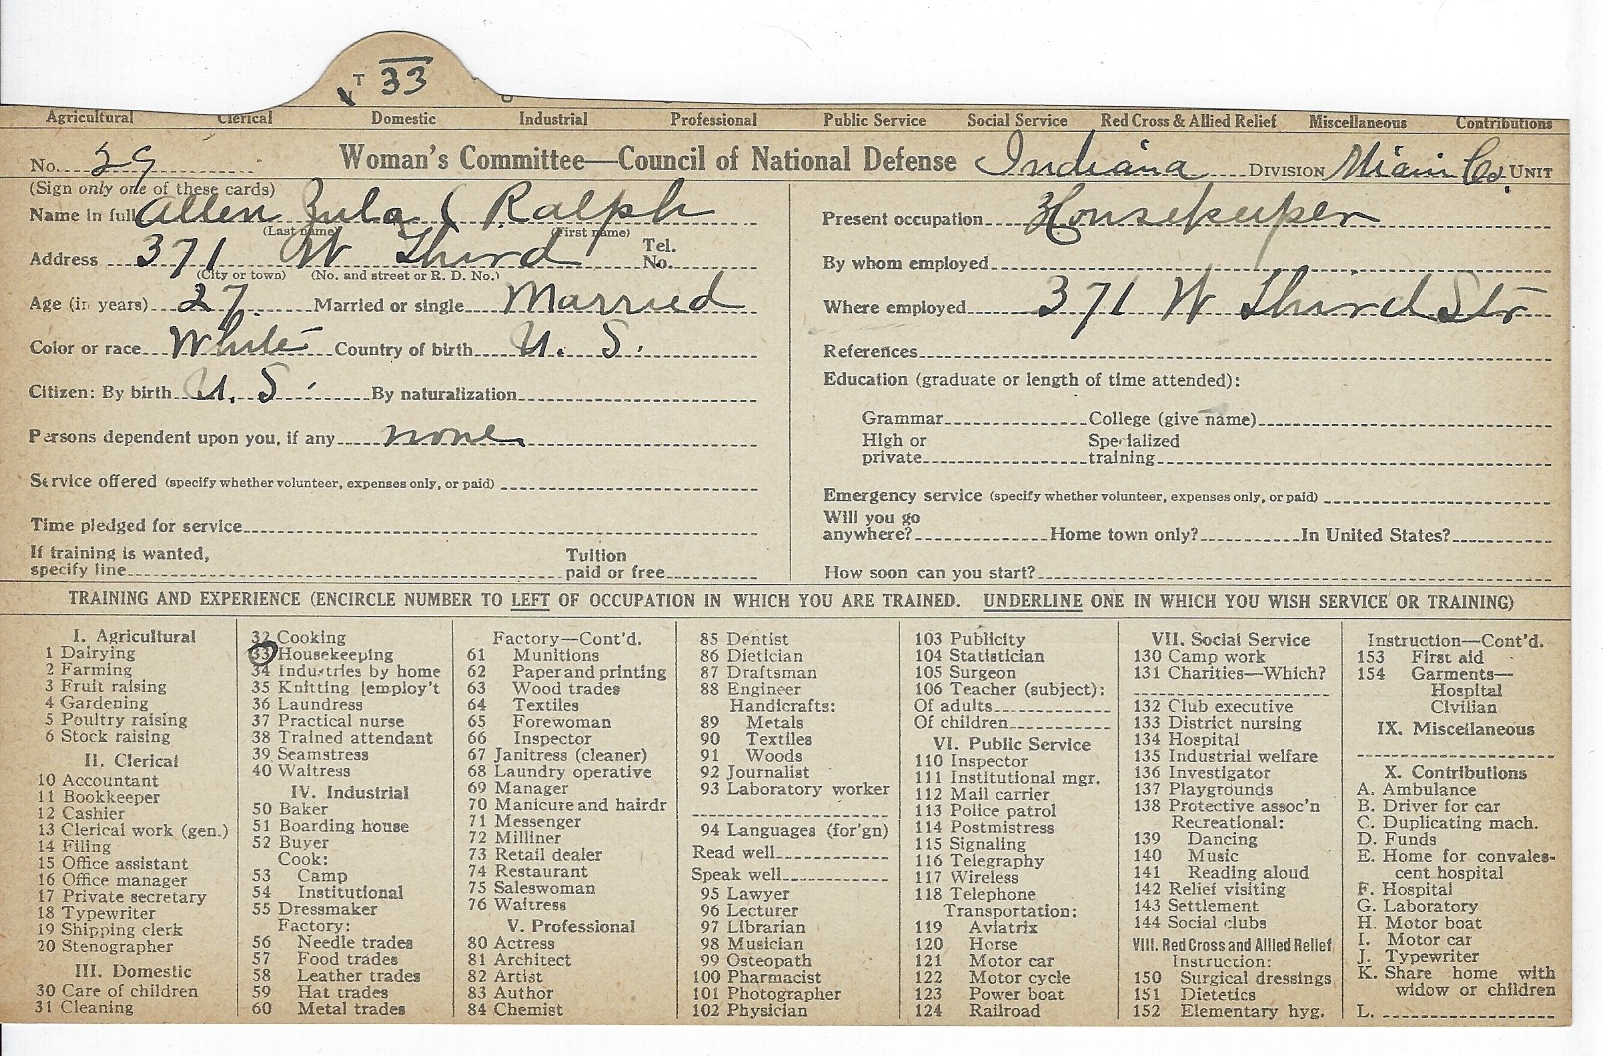 T 33
Agricultural Clerical Domestic Industrial Professional Public Service Social Service Red Cross & Allied Relief Miscellaneous Contributions
No. 29 Woman's Committee—Council of National Defense Indiana DIVISION Miami Co. UNIT
(Sign only one of these cards)
Name in full Allen Zula ( Ralph
(Last name) (First name)
Address 371 W Third Tel. No.
(City or town) (No. and street or R. D. No.)
Age (in years) 27. Married or single Married
Color or race White Country of birth U. S.
Citizen: By birth U. S. By naturalization
Persons dependent upon you, if any none
Service offered (specify whether volunteer, expenses only, or paid)
Time pledged for service
If training is wanted, specify line Tuition paid or free
Present occupation Housekeeper
By whom employed
Where employed 371 W Third Str
References
Education (graduate or length of time attended):
Grammar College (give name)
High or private Specialized training
Emergency service (specify whether volunteer, expenses only, or paid)
Will you go anywhere? Home town only? In United States?
How soon can you start?
TRAINING AND EXPERIENCE (ENCIRCLE NUMBER TO LEFT OF OCCUPATION IN WHICH YOU ARE TRAINED. UNDERLINE ONE IN WHICH YOU WISH SERVICE OR TRAINING)
I. Agricultural
1 Dairying
2 Farming
3 Fruit raising
4 Gardening
5 Poultry raising
6 Stock raising
II. Clerical
10 Accountant
11 Bookkeeper
12 Cashier
13 Clerical work (gen.)
14 Filing
15 Office assistant
16 Office manager
17 Private secretary
18 Typewriter
19 Shipping clerk
20 Stenographer
III. Domestic
30 Care of children
31 Cleaning
32 Cooking
33 Housekeeping
34 Industries by home
35 Knitting [employ't
36 Laundress
37 Practical nurse
38 Trained attendant
39 Seamstress
40 Waitress
IV. Industrial
50 Baker
51 Boarding house
52 Buyer
Cook:
53 Camp
54 Institutional
55 Dressmaker
Factory:
56 Needle trades
57 Food trades
58 Leather trades
59 Hat trades
60 Metal trades
Factory—Cont'd.
61 Munitions
62 Paper and printing
63 Wood trades
64 Textiles
65 Forewoman
66 Inspector
67 Janitress (cleaner)
68 Laundry operative
69 Manager
70 Manicure and hairdr
71 Messenger
72 Milliner
73 Retail dealer
74 Restaurant
75 Saleswoman
76 Waitress
V. Professional
80 Actress
81 Architect
82 Artist
83 Author
84 Chemist
85 Dentist
86 Dietician
87 Draftsman
88 Engineer
Handicrafts:
89 Metals
90 Textiles
91 Woods
92 Journalist
93 Laboratory worker
94 Languages (for'gn)
Read well
Speak well
95 Lawyer
96 Lecturer
97 Librarian
98 Musician
99 Osteopath
100 Pharmacist
101 Photographer
102 Physician
103 Publicity
104 Statistician
105 Surgeon
106 Teacher (subject):
Of adults
Of children
VI. Public Service
110 Inspector
111 Institutional mgr.
112 Mail carrier
113 Police patrol
114 Postmistress
115 Signaling
116 Telegraphy
117 Wireless
118 Telephone
Transportation:
119 Aviatrix
120 Horse
121 Motor car
122 Motor cycle
123 Power boat
124 Railroad
VII. Social Service
130 Camp work
131 Charities—Which?
132 Club executive
133 District nursing
134 Hospital
135 Industrial welfare
136 Investigator
137 Playgrounds
138 Protective assoc'n
Recreational:
139 Dancing
140 Music
141 Reading aloud
142 Relief visiting
143 Settlement
144 Social clubs
VIII. Red Cross and Allied Relief
Instruction:
150 Surgical dressings
151 Dietetics
152 Elementary hyg.
Instruction—Cont'd.
153 First aid
154 Garments—
Hospital
Civilian
IX. Miscellaneous
X. Contributions
A. Ambulance
B. Driver for car
C. Duplicating mach.
D. Funds
E. Home for convales-
cent hospital
F. Hospital
G. Laboratory
H. Motor boat
I. Motor car
J. Typewriter
K. Share home with
widow or children
L.